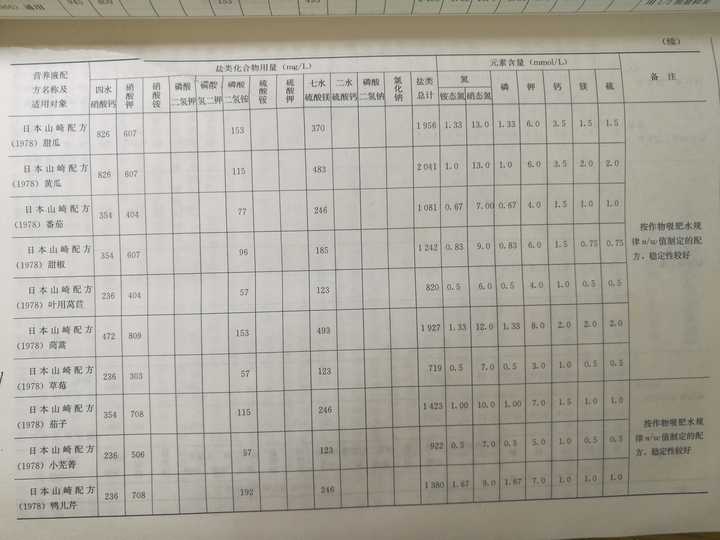 1966）通用 945 809 153 493
（续）
营养液配方名称及适用对象 盐类化合物用量（mg/L） 元素含量（mmol/L） 备 注
四水硝酸钙 硝酸钾 硝酸铵 磷酸二氢钾 磷酸氢二钾 磷酸二氢铵 硫酸铵 硫酸钾 七水硫酸镁 二水硫酸钙 磷酸二氢钠 氯化钠 盐类总计 氮 铵态氮 硝态氮 磷 钾 钙 镁 硫
日本山崎配方 826 607 153 370 1 956 1.33 13.0 1.33 6.0 3.5 1.5 1.5
（1978）甜瓜
日本山崎配方 826 607 115 483 2 041 1.0 13.0 1.0 6.0 3.5 2.0 2.0
（1978）黄瓜
日本山崎配方 354 404 77 246 1 081 0.67 7.00 0.67 4.0 1.5 1.0 1.0
（1978）番茄
按作物吸肥水规
日本山崎配方 354 607 96 185 1 242 0.83 9.0 0.83 6.0 1.5 0.75 0.75
（1978）甜椒
律 n/w 值制定的配
方，稳定性较好
日本山崎配方 236 404 57 123 820 0.5 6.0 0.5 4.0 1.0 0.5 0.5
（1978）叶用莴苣
日本山崎配方 472 809 153 493 1 927 1.33 12.0 1.33 8.0 2.0 2.0 2.0
（1978）茼蒿
日本山崎配方 236 303 57 123 719 0.5 7.0 0.5 3.0 1.0 0.5 0.5
（1978）草莓
日本山崎配方 354 708 115 246 1 423 1.00 10.0 1.00 7.0 1.5 1.0 1.0
（1978）茄子
按作物吸肥水规
律 n/w 值制定的配
方，稳定性较好
日本山崎配方 236 506 57 123 922 0.5 7.0 0.5 5.0 1.0 0.5 0.5
（1978）小芜菁
日本山崎配方 236 708 192 246 1 380 1.67 9.0 1.67 7.0 1.0 1.0 1.0
（1978）鸭儿芹